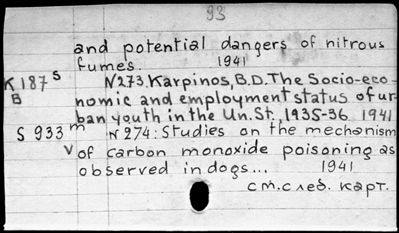 93
and potential dangers of nitrous
fumes. 1941
K 187 s N273. Karpinos, B.D. The Socio-eco-
B nomic and employment status of ur-
ban youth in the Un. St., 1935-36 1941
S 933 m N 274: Studies on the mechanism
v of carbon monoxide poisoning as
observed in dogs... 1941
см. след. карт.